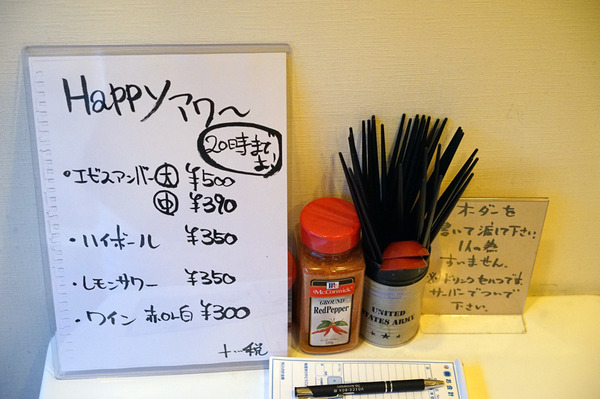 Happyアワ〜
20時まで
・エビスアンバー大 ¥500
中 ¥390
・ハイボール ¥350
・レモンサワー ¥350
・ワイン 赤or白 ¥300
+…税
McCormick
GROUND
Red Pepper
UNITED
STATES ARMY
オーダーを
書いて渡して下さい
1人の為
すいません。
ドリンクもハコです。
サーバーでついで
下さい。